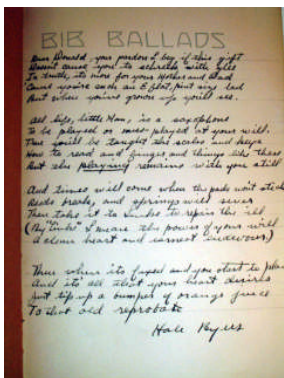 BIB BALLADS
Dear Donald your pardon I beg if this gift
Doesn't cause you to screech with glee
In truth, its more for your Mother and Dad
'Cause you're such an E flat, pint size lad
But when you're grown up you'll see.
All life, little Man, is a saxophone
to be played or miss-played at your will.
True you'll be taught the scales and keys
How to read and finger and things like these
But the playing remains with you still
And times will come when the pads won't stick
Reeds break, and springs will
Then take it to to repair the ill
(By " " I mean the power of your will
A clean heart and earnest endeavor.)
Then when its fixed and you start to play
And its all that your heart desires
Just tip up a bumper of orange juice
To that old reprobate
Hale Byers